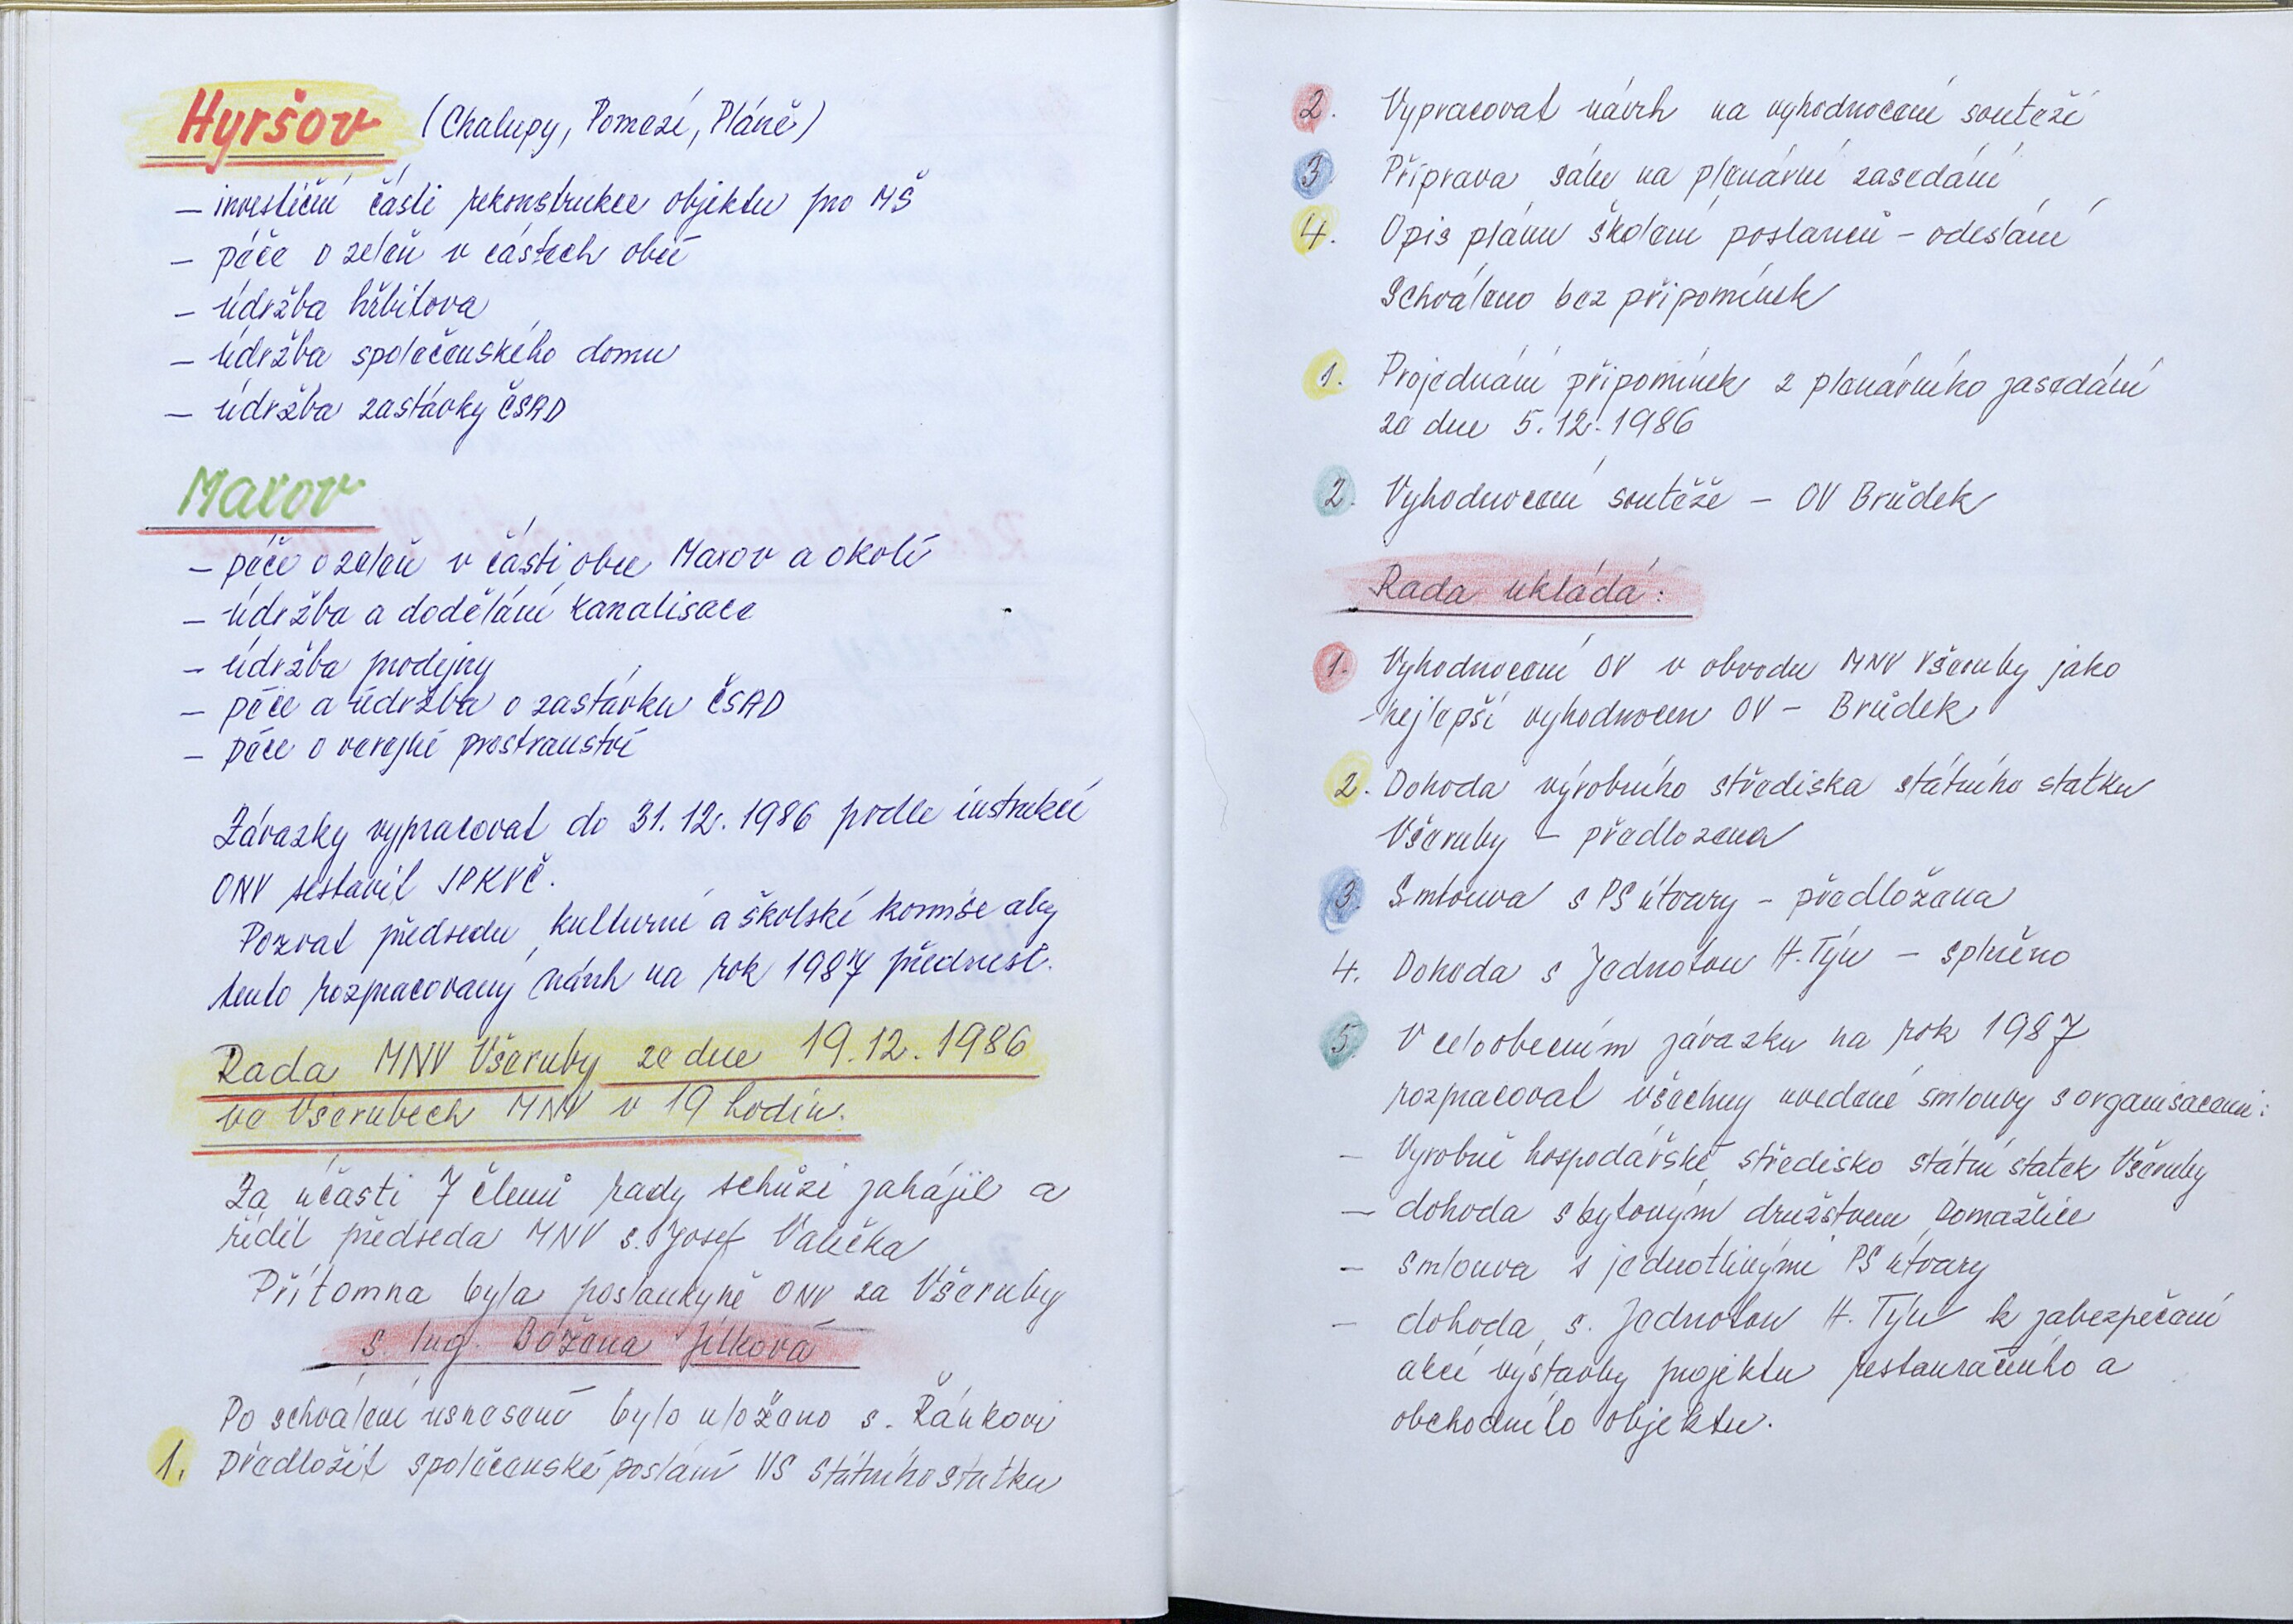 Hyršov (Chalupy, Pomezí, Pláně)
– investiční části rekonstrukce objektu pro MŠ
– péče o zeleň v částech obcí
– údržba hřbitova
– údržba společenského domu
– údržba zastávky ČSAD
Maxov
– péče o zeleň v části obce Maxov a okolí
– údržba a dodělání kanalisace
– údržba prodejny
– péče a údržba o zastávku ČSAD
– péče o veřejné prostranství
Závazky vypracovat do 31. 12. 1986 podle instrukcí
ONV sestavil JPKVČ.
Pozvat předsedu kulturní a školské komise aby
tento rozpracovaný návrh na rok 1987 přednesl.
Rada MNV Všeruby ze dne 19. 12. 1986
ve Všerubech MNV v 19 hodin.
Za účasti 7 členů rady schůzi zahájil a
řídil předseda MNV s. Josef Valečka
Přítomna byla poslankyně ONV za Všeruby
s. Ing. Božena Jílková
Po schválení usnesení bylo uloženo s. Řánkovi
1. Předložit společenské poslání VS Státního statku
2. Vypracovat návrh na vyhodnocení soutěží
3. Příprava sálu na plenární zasedání
4. Opis plánu školení poslanců – odeslání
Schváleno bez připomínek
1. Projednání připomínek z plenárního zasedání
ze dne 5. 12. 1986
2. Vyhodnocení soutěže – OV Brůdek
Rada ukládá:
1. Vyhodnocení OV v obvodu MNV Všeruby jako
nejlepší vyhodnocen OV – Brůdek
2. Dohoda výrobního střediska státního statku
Všeruby – předlozena
3. Smlouva s PS útvary – předložena
4. Dohoda s Jednotou H. Týn – splněno
5. V celoobecním závazku na rok 1987
rozpracovat všechny uvedené smlouvy s organisacemi:
– Vyrobně hospodářské středisko státní statek Všeruby
– dohoda s bytovým družstvem Domažlice
– smlouva s jednotlivými PS útvary
– dohoda s. Jednotou H. Týn k zabezpečení
akcí výstavby projektu restauračního a
obchodního objektu.